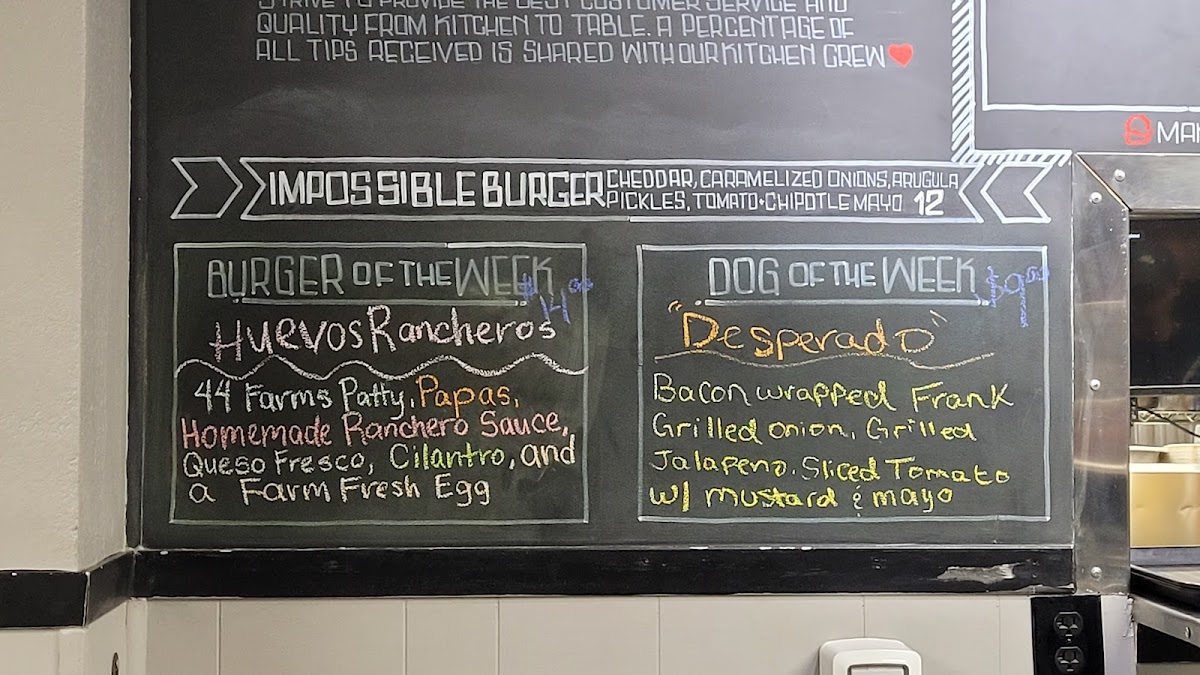 STRIVE TO PROVIDE THE BEST CUSTOMER SERVICE AND
QUALITY FROM KITCHEN TO TABLE. A PERCENTAGE OF
ALL TIPS RECEIVED IS SHARED WITH OUR KITCHEN CREW
IMPOSSIBLE BURGER CHEDDAR, CARAMELIZED ONIONS, ARUGULA
PICKLES, TOMATO + CHIPOTLE MAYO 12
BURGER OF THE WEEK $14.00
Huevos Rancheros
44 Farms Patty, Papas,
Homemade Ranchero Sauce,
Queso Fresco, Cilantro, and
a Farm Fresh Egg
DOG OF THE WEEK $9.00
"Desperado"
Bacon wrapped Frank
Grilled onion, Grilled
Jalapeno, Sliced Tomato
w/ mustard & mayo